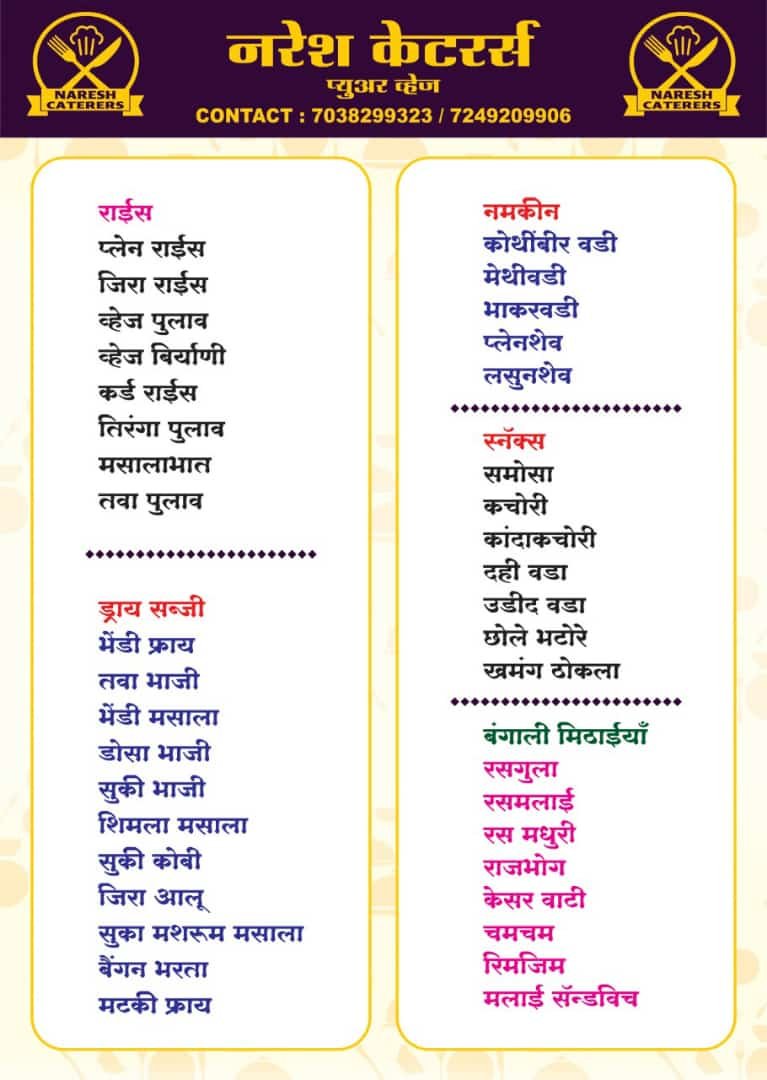 NARESH
CATERERS
नरेश केटरर्स
प्युअर व्हेज
CONTACT : 7038299323 / 7249209906
NARESH
CATERERS
राईस
प्लेन राईस
जिरा राईस
व्हेज पुलाव
व्हेज बिर्याणी
कर्ड राईस
तिरंगा पुलाव
मसालाभात
तवा पुलाव
ड्राय सब्जी
भेंडी फ्राय
तवा भाजी
भेंडी मसाला
डोसा भाजी
सुकी भाजी
शिमला मसाला
सुकी कोबी
जिरा आलू
सुका मशरूम मसाला
बैंगन भरता
मटकी फ्राय
नमकीन
कोथींबीर वडी
मेथीवडी
भाकरवडी
प्लेनशेव
लसुनशेव
स्नॅक्स
समोसा
कचोरी
कांदाकचोरी
दही वडा
उडीद वडा
छोले भटोरे
खमंग ठोकला
बंगाली मिठाईयाँ
रसगुला
रसमलाई
रस मधुरी
राजभोग
केसर वाटी
चमचम
रिमजिम
मलाई सॅन्डविच